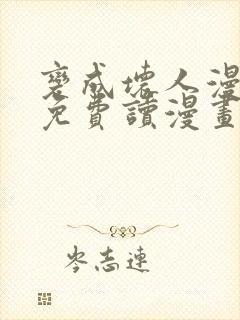 變成壞人漫
免費讀漫畫
岑志連